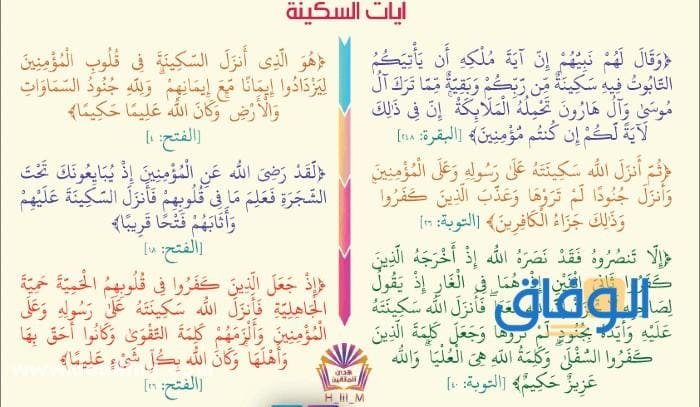 آيات السكينة
﴿وَقَالَ لَهُمْ نَبِيُّهُمْ إِنَّ آيَةَ مُلْكِهِ أَن يَأْتِيَكُمُ
التَّابُوتُ فِيهِ سَكِينَةٌ مِّن رَّبِّكُمْ وَبَقِيَّةٌ مِّمَّا تَرَكَ آلُ
مُوسَىٰ وَآلُ هَارُونَ تَحْمِلُهُ الْمَلَائِكَةُ ۚ إِنَّ فِي ذَٰلِكَ
لَآيَةً لَّكُمْ إِن كُنتُم مُّؤْمِنِينَ﴾ [البقرة: ٢٤٨]
﴿ثُمَّ أَنزَلَ اللَّهُ سَكِينَتَهُ عَلَىٰ رَسُولِهِ وَعَلَى الْمُؤْمِنِينَ
وَأَنزَلَ جُنُودًا لَّمْ تَرَوْهَا وَعَذَّبَ الَّذِينَ كَفَرُوا ۚ
وَذَٰلِكَ جَزَاءُ الْكَافِرِينَ﴾ [التوبة: ٢٦]
﴿إِلَّا تَنصُرُوهُ فَقَدْ نَصَرَهُ اللَّهُ إِذْ أَخْرَجَهُ الَّذِينَ
كَفَرُوا ثَانِيَ اثْنَيْنِ إِذْ هُمَا فِي الْغَارِ إِذْ يَقُولُ
لِصَاحِبِهِ فَأَنزَلَ اللَّهُ سَكِينَتَهُ
عَلَيْهِ وَأَيَّدَهُ بِجُنُودٍ لَّمْ تَرَوْهَا وَجَعَلَ كَلِمَةَ الَّذِينَ
كَفَرُوا السُّفْلَىٰ ۗ وَكَلِمَةُ اللَّهِ هِيَ الْعُلْيَا ۗ وَاللَّهُ
عَزِيزٌ حَكِيمٌ﴾ [التوبة: ٤٠]
الوفاق
﴿هُوَ الَّذِي أَنزَلَ السَّكِينَةَ فِي قُلُوبِ الْمُؤْمِنِينَ
لِيَزْدَادُوا إِيمَانًا مَّعَ إِيمَانِهِمْ ۗ وَلِلَّهِ جُنُودُ السَّمَاوَاتِ
وَالْأَرْضِ ۚ وَكَانَ اللَّهُ عَلِيمًا حَكِيمًا﴾
[الفتح: ٤]
﴿لَّقَدْ رَضِيَ اللَّهُ عَنِ الْمُؤْمِنِينَ إِذْ يُبَايِعُونَكَ تَحْتَ
الشَّجَرَةِ فَعَلِمَ مَا فِي قُلُوبِهِمْ فَأَنزَلَ السَّكِينَةَ عَلَيْهِمْ
وَأَثَابَهُمْ فَتْحًا قَرِيبًا﴾
[الفتح: ١٨]
﴿إِذْ جَعَلَ الَّذِينَ كَفَرُوا فِي قُلُوبِهِمُ الْحَمِيَّةَ حَمِيَّةَ
الْجَاهِلِيَّةِ فَأَنزَلَ اللَّهُ سَكِينَتَهُ عَلَىٰ رَسُولِهِ وَعَلَى
الْمُؤْمِنِينَ وَأَلْزَمَهُمْ كَلِمَةَ التَّقْوَىٰ وَكَانُوا أَحَقَّ بِهَا
وَأَهْلَهَا ۚ وَكَانَ اللَّهُ بِكُلِّ شَيْءٍ عَلِيمًا﴾
[الفتح: ٢٦]
هدى
للمتقين
H_lil_M